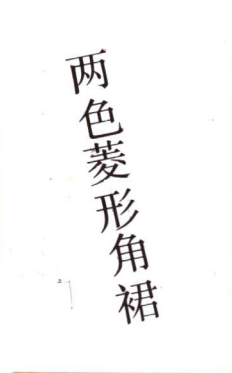 两色菱形角裙